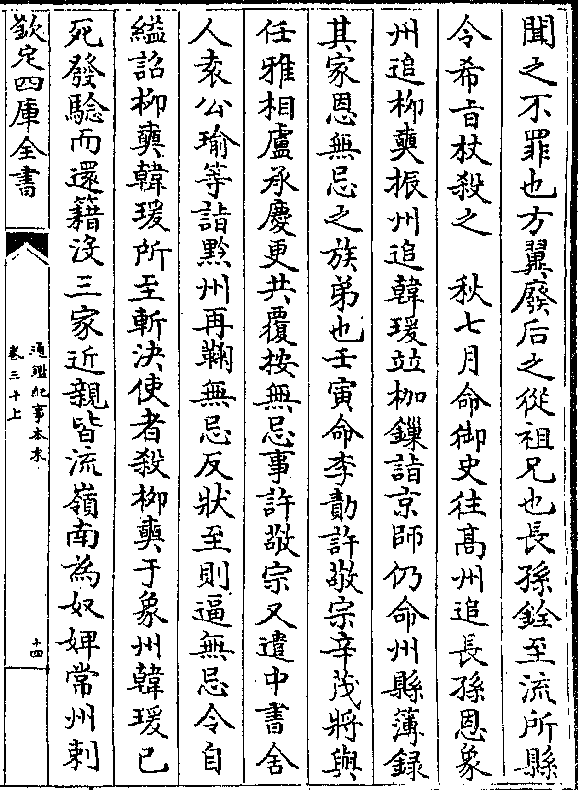 聞之不罪也方翼廢后之從祖兄也長孫銓至流所縣
令希旨杖殺之　秋七月命御史往髙州追長孫恩象
州追柳奭振州追韓瑗竝枷鏁詣京師仍命州縣薄録
其家恩無忌之族弟也壬寅命李勣許敬宗辛茂將與
任雅相盧承慶更共覆按無忌事許敬宗又遣中書舍
人袁公瑜等詣黔州再鞫無忌反狀至則逼無忌令自
縊詔柳奭韓瑗所至斬決使者殺柳奭于象州韓瑗已
死發驗而還籍沒三家近親皆流嶺南為奴婢常州刺
欽定四庫全書
通鑑紀事本末
卷三十上
十四